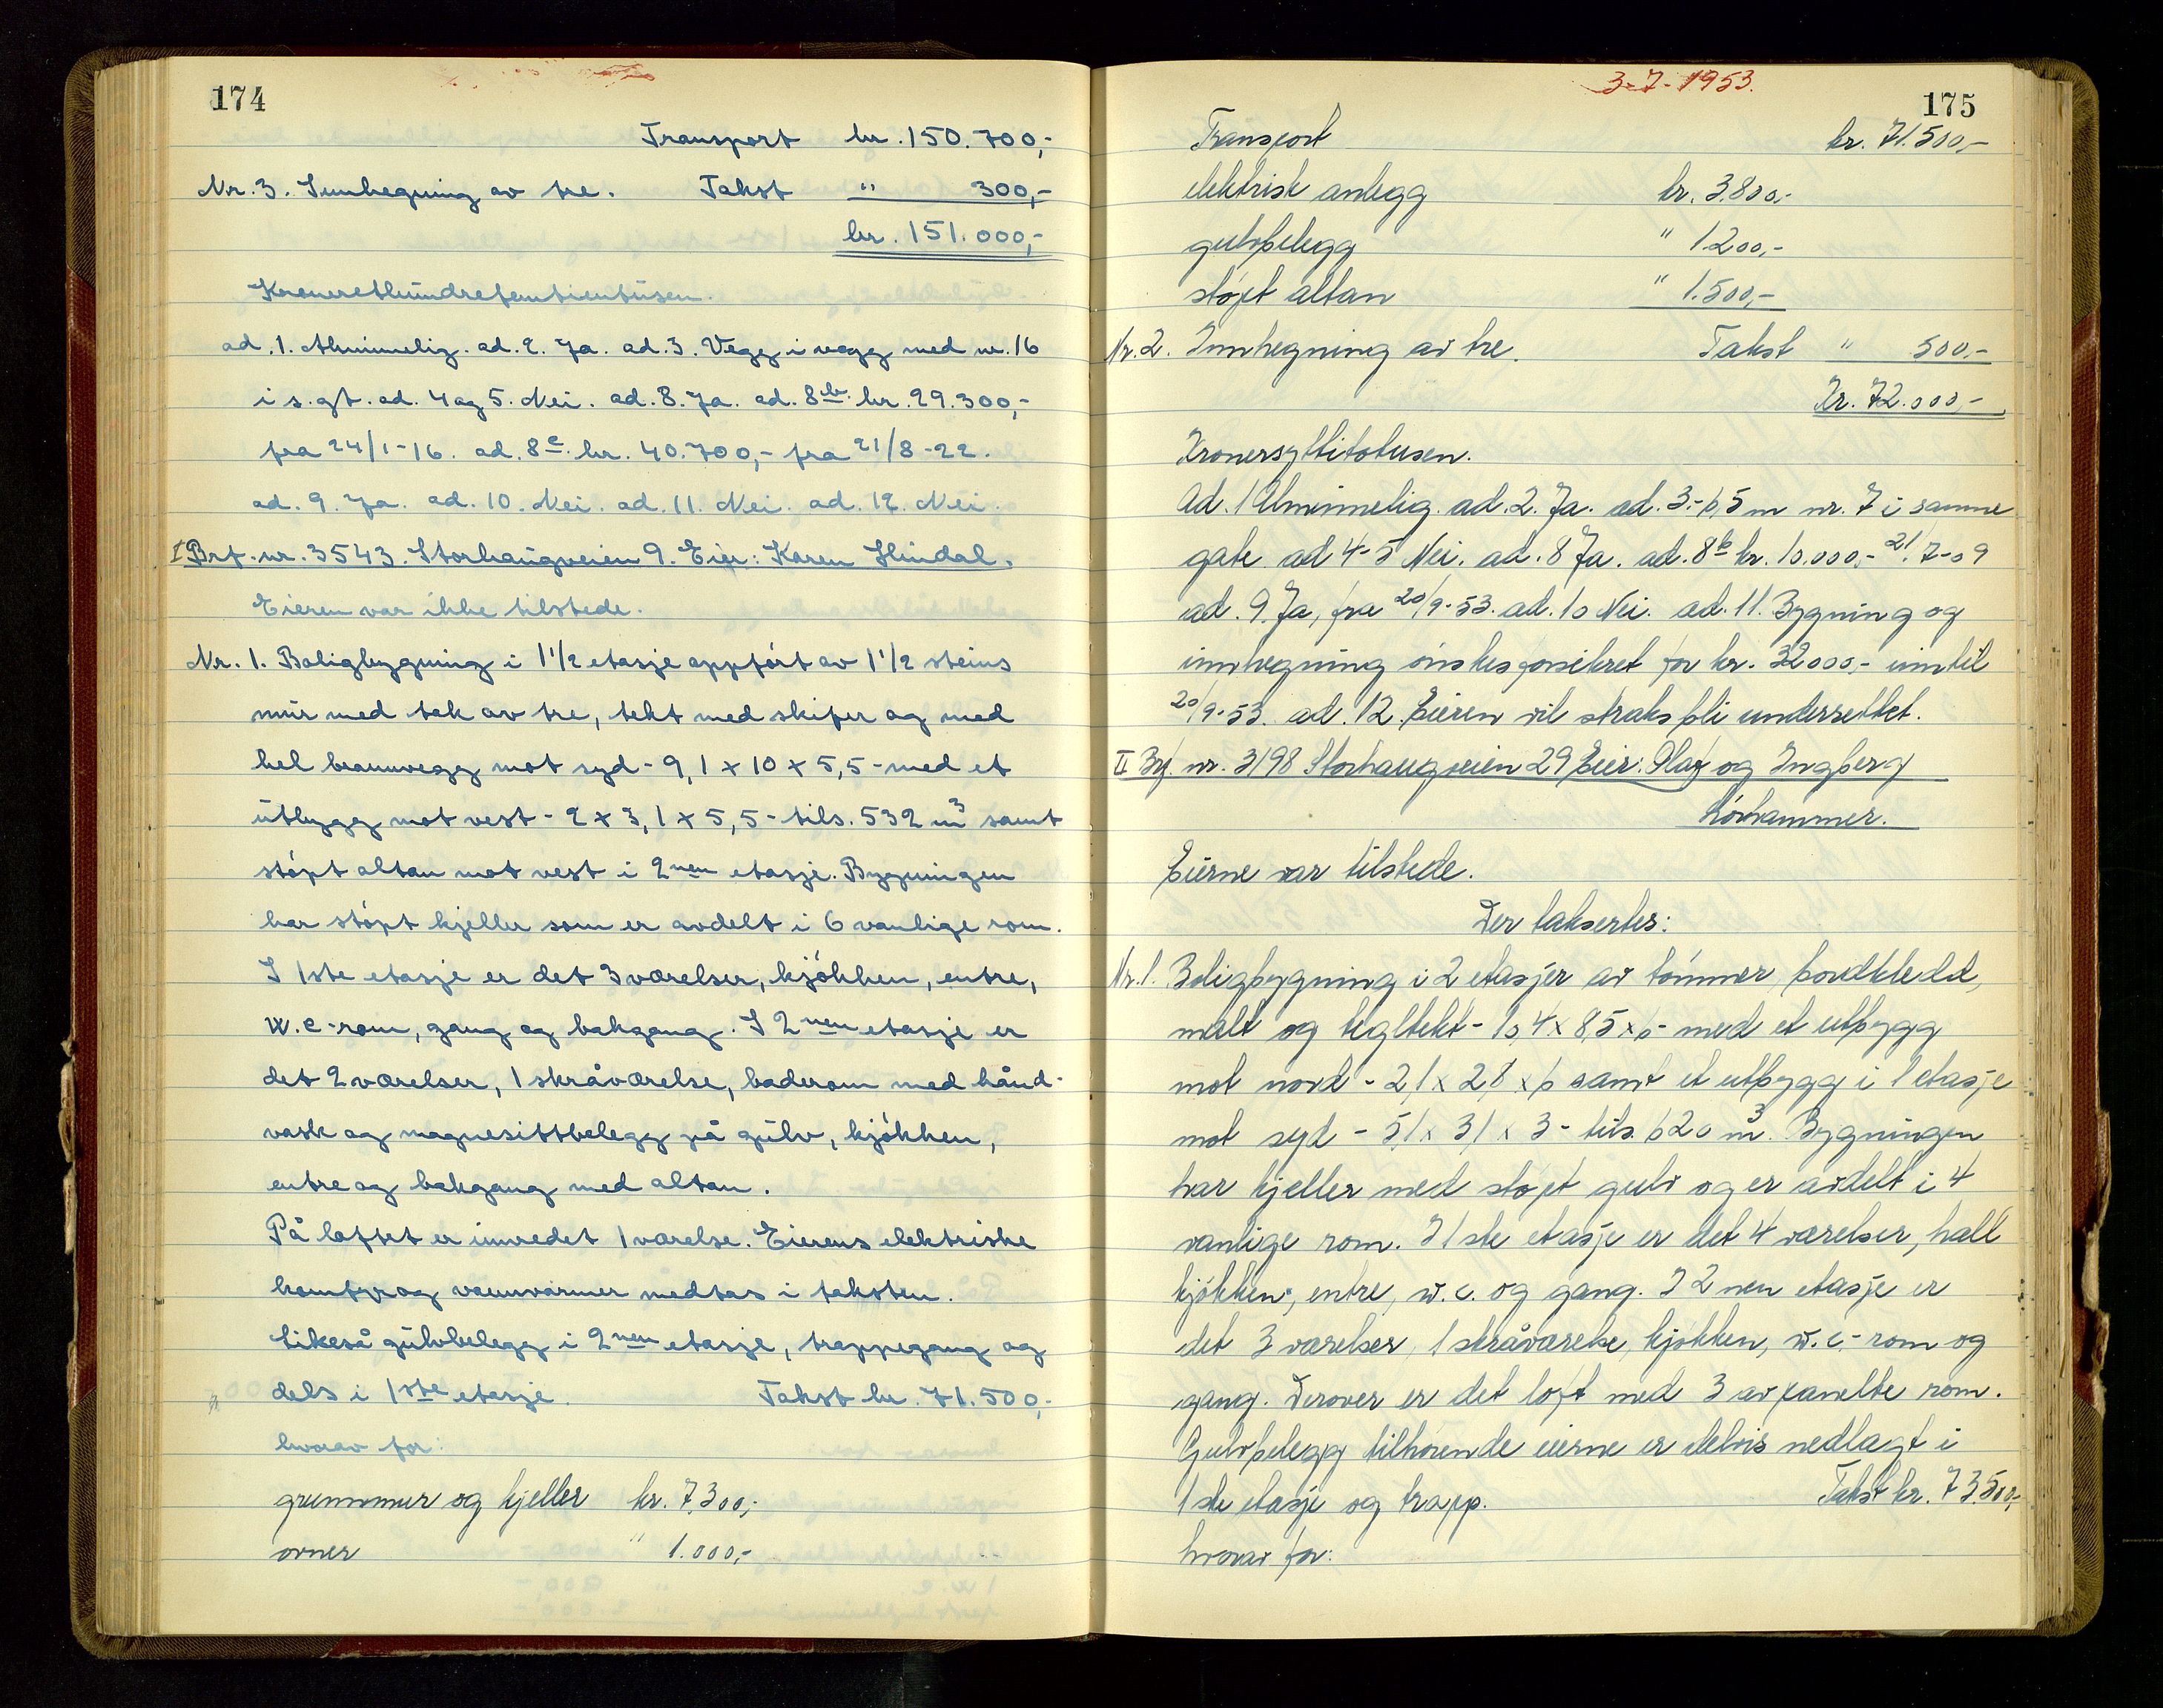 174
Transport kr. 150.700,-
Nr. 3. Innhegning av tre. Takst " 300,-
kr. 151.000,-
Kroneretthundrefemtientusen.
ad. 1. Alminnelig. ad. 2. Ja. ad. 3. Vegg i vegg med nr. 16
i s. gt. ad. 4 og 5. Nei. ad. 8. Ja. ad. 8b. kr. 29.300,-
fra 24/1-16. ad. 8c. kr. 40.700,- fra 21/8-22.
ad. 9. Ja. ad. 10. Nei. ad. 11. Nei. ad. 12. Nei.
I Brf. nr. 3543. Storhaugveien 9. Eier: Karen Hindal.
Eieren var ikke tilstede.
Nr. 1. Boligbygning i 1 1/2 etasje oppført av 1 1/2 steins
mur med tak av tre, tekt med skifer og med
hel brannvegg mot syd - 9,1 x 10 x 5,5 - med et
utbygg mot vest - 2 x 3,1 x 5,5 - tils. 532 m3 samt
støpt altan mot vest i 2nen etasje. Bygningen
har støpt kjeller som er avdelt i 6 vanlige rom.
I 1ste etasje er det 3 værelser, kjøkken, entre,
w.c-rom, gang og bakgang. I 2nen etasje er
det 2 værelser, 1 skråværelse, baderom med hånd-
vask og magnesittbelegg på gulv, kjøkken,
entre og bakgang med altan.
På loftet er innredet 1 værelse. Eierens elektriske
komfyr og vannvarmer medtas i taksten.
Likeså gulvbelegg i 2nen etasje, trappegang og
dels i 1ste etasje. Takst kr. 71.500,-
hvorav for:
grunnmur og kjeller kr. 7.300,-
ovner " 1.000,-
3-7-1953.
175
Transport kr. 71.500,-
elektrisk anlegg kr. 3.800,-
gulvbelegg " 1.200,-
støpt altan " 1.500,-
Nr. 2. Innhegning av tre. Takst " 500,-
Kr. 72.000,-
Kronersyttitotusen.
Ad. 1 Alminnelig. ad. 2. Ja. ad. 3.- 6,5 m nr. 7 i samme
gate ad 4-5 Nei. ad. 8 Ja. ad. 8b kr. 10.000,- 21/7-09
ad. 9. Ja, fra 20/9-53. ad. 10 Nei. ad. 11. Bygning og
innhegning ønskes forsikret for kr. 32000,- inntil
20/9-53. ad. 12. Eieren vil straks bli underrettet.
II Brf. nr. 3198 Storhaugveien 29 Eier: Olaf og Ingberg
Lørhammer.
Eierne var tilstede.
Der takseres:
Nr. 1. Boligbygning i 2 etasjer av tømmer, bordkledd,
malt og tegltekt - 10,4 x 8,5 x 6 - med et utbygg
mot nord - 2,1 x 2,8 x 6 samt et utbygg i 1 etasje
mot syd - 5,1 x 3,1 x 3 - tils. 620 m3. Bygningen
har kjeller med støpt gulv og er avdelt i 4
vanlige rom. I 1ste etasje er det 4 værelser, hall
kjøkken, entre, w.c. og gang. I 2 nen etasje er
det 3 værelser, 1 skråværelse, kjøkken, w.c.-rom og
gang. Derover er det loft med 3 avpanelte rom.
Gulvbelegg tilhørende eierne er delvis nedlagt i
1ste etasje og trapp. Takst kr. 73.500,-
hvorav for: